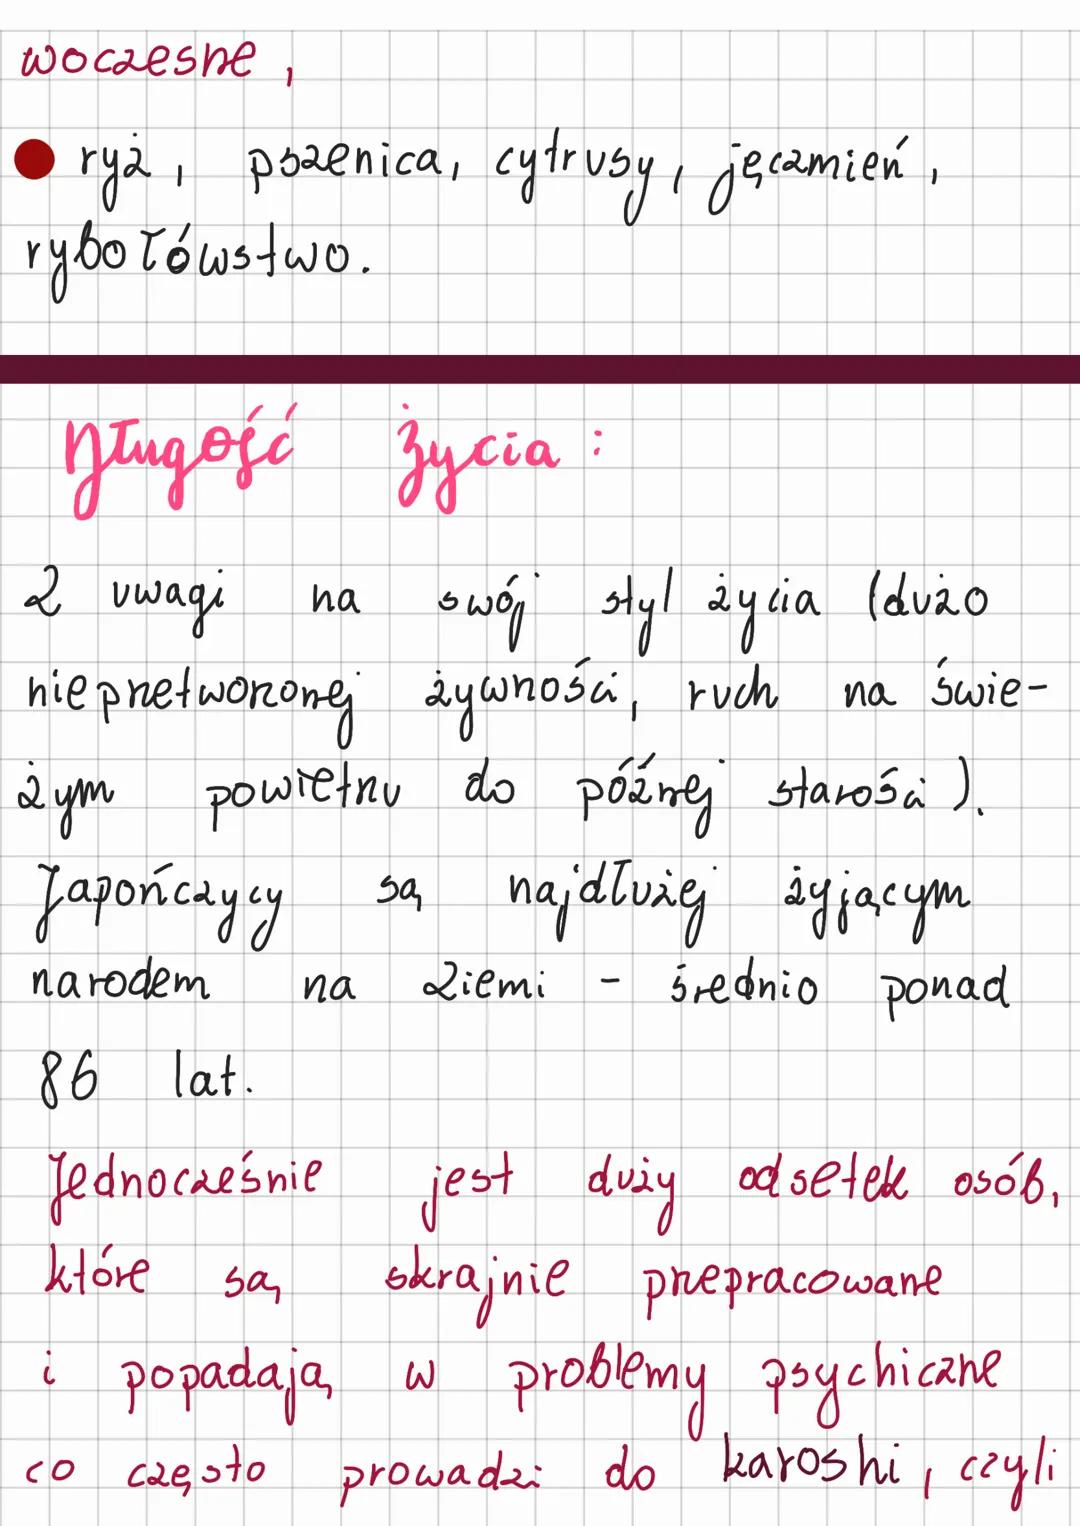 woczesne,
ryż, pszenica, cytrusy, jęczmień,
rybołówstwo.
Długość życia:
Z uwagi na swój styl życia (dużo
nieprzetworzonej żywności, ruch na świe-
żym powietrzu do późnej starości).
Japończycy są najdłużej żyjącym
narodem na Ziemi - średnio ponad
86 lat.
Jednocześnie jest duży odsetek osób,
które są skrajnie przepracowane
i popadają w problemy psychiczne
co często prowadzi do karoshi, czyli